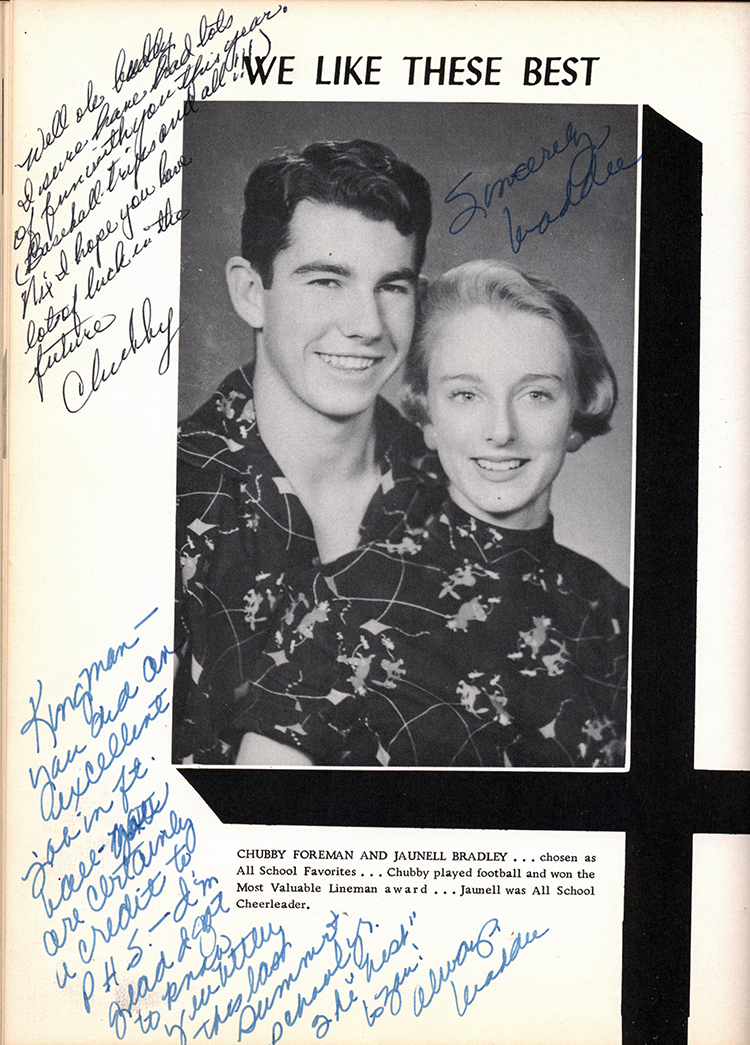 WE LIKE THESE BEST
Well ole buddy
I sure have had lots
of fun with you this year.
(Baseball trips and all!!!)
Nix I hope you have
lots of luck in the
future
Chubby
Sincerely
Waddie
Kingman—
you did an
excellent
job in ft.
ball-
are certainly
a credit to
P H S. — I'm
glad I got
to know
you
this last
Summer
school yr.
The "best"
to you!
Always
Waddie
CHUBBY FOREMAN AND JAUNELL BRADLEY . . . chosen as
All School Favorites . . . Chubby played football and won the
Most Valuable Lineman award . . . Jaunell was All School
Cheerleader.